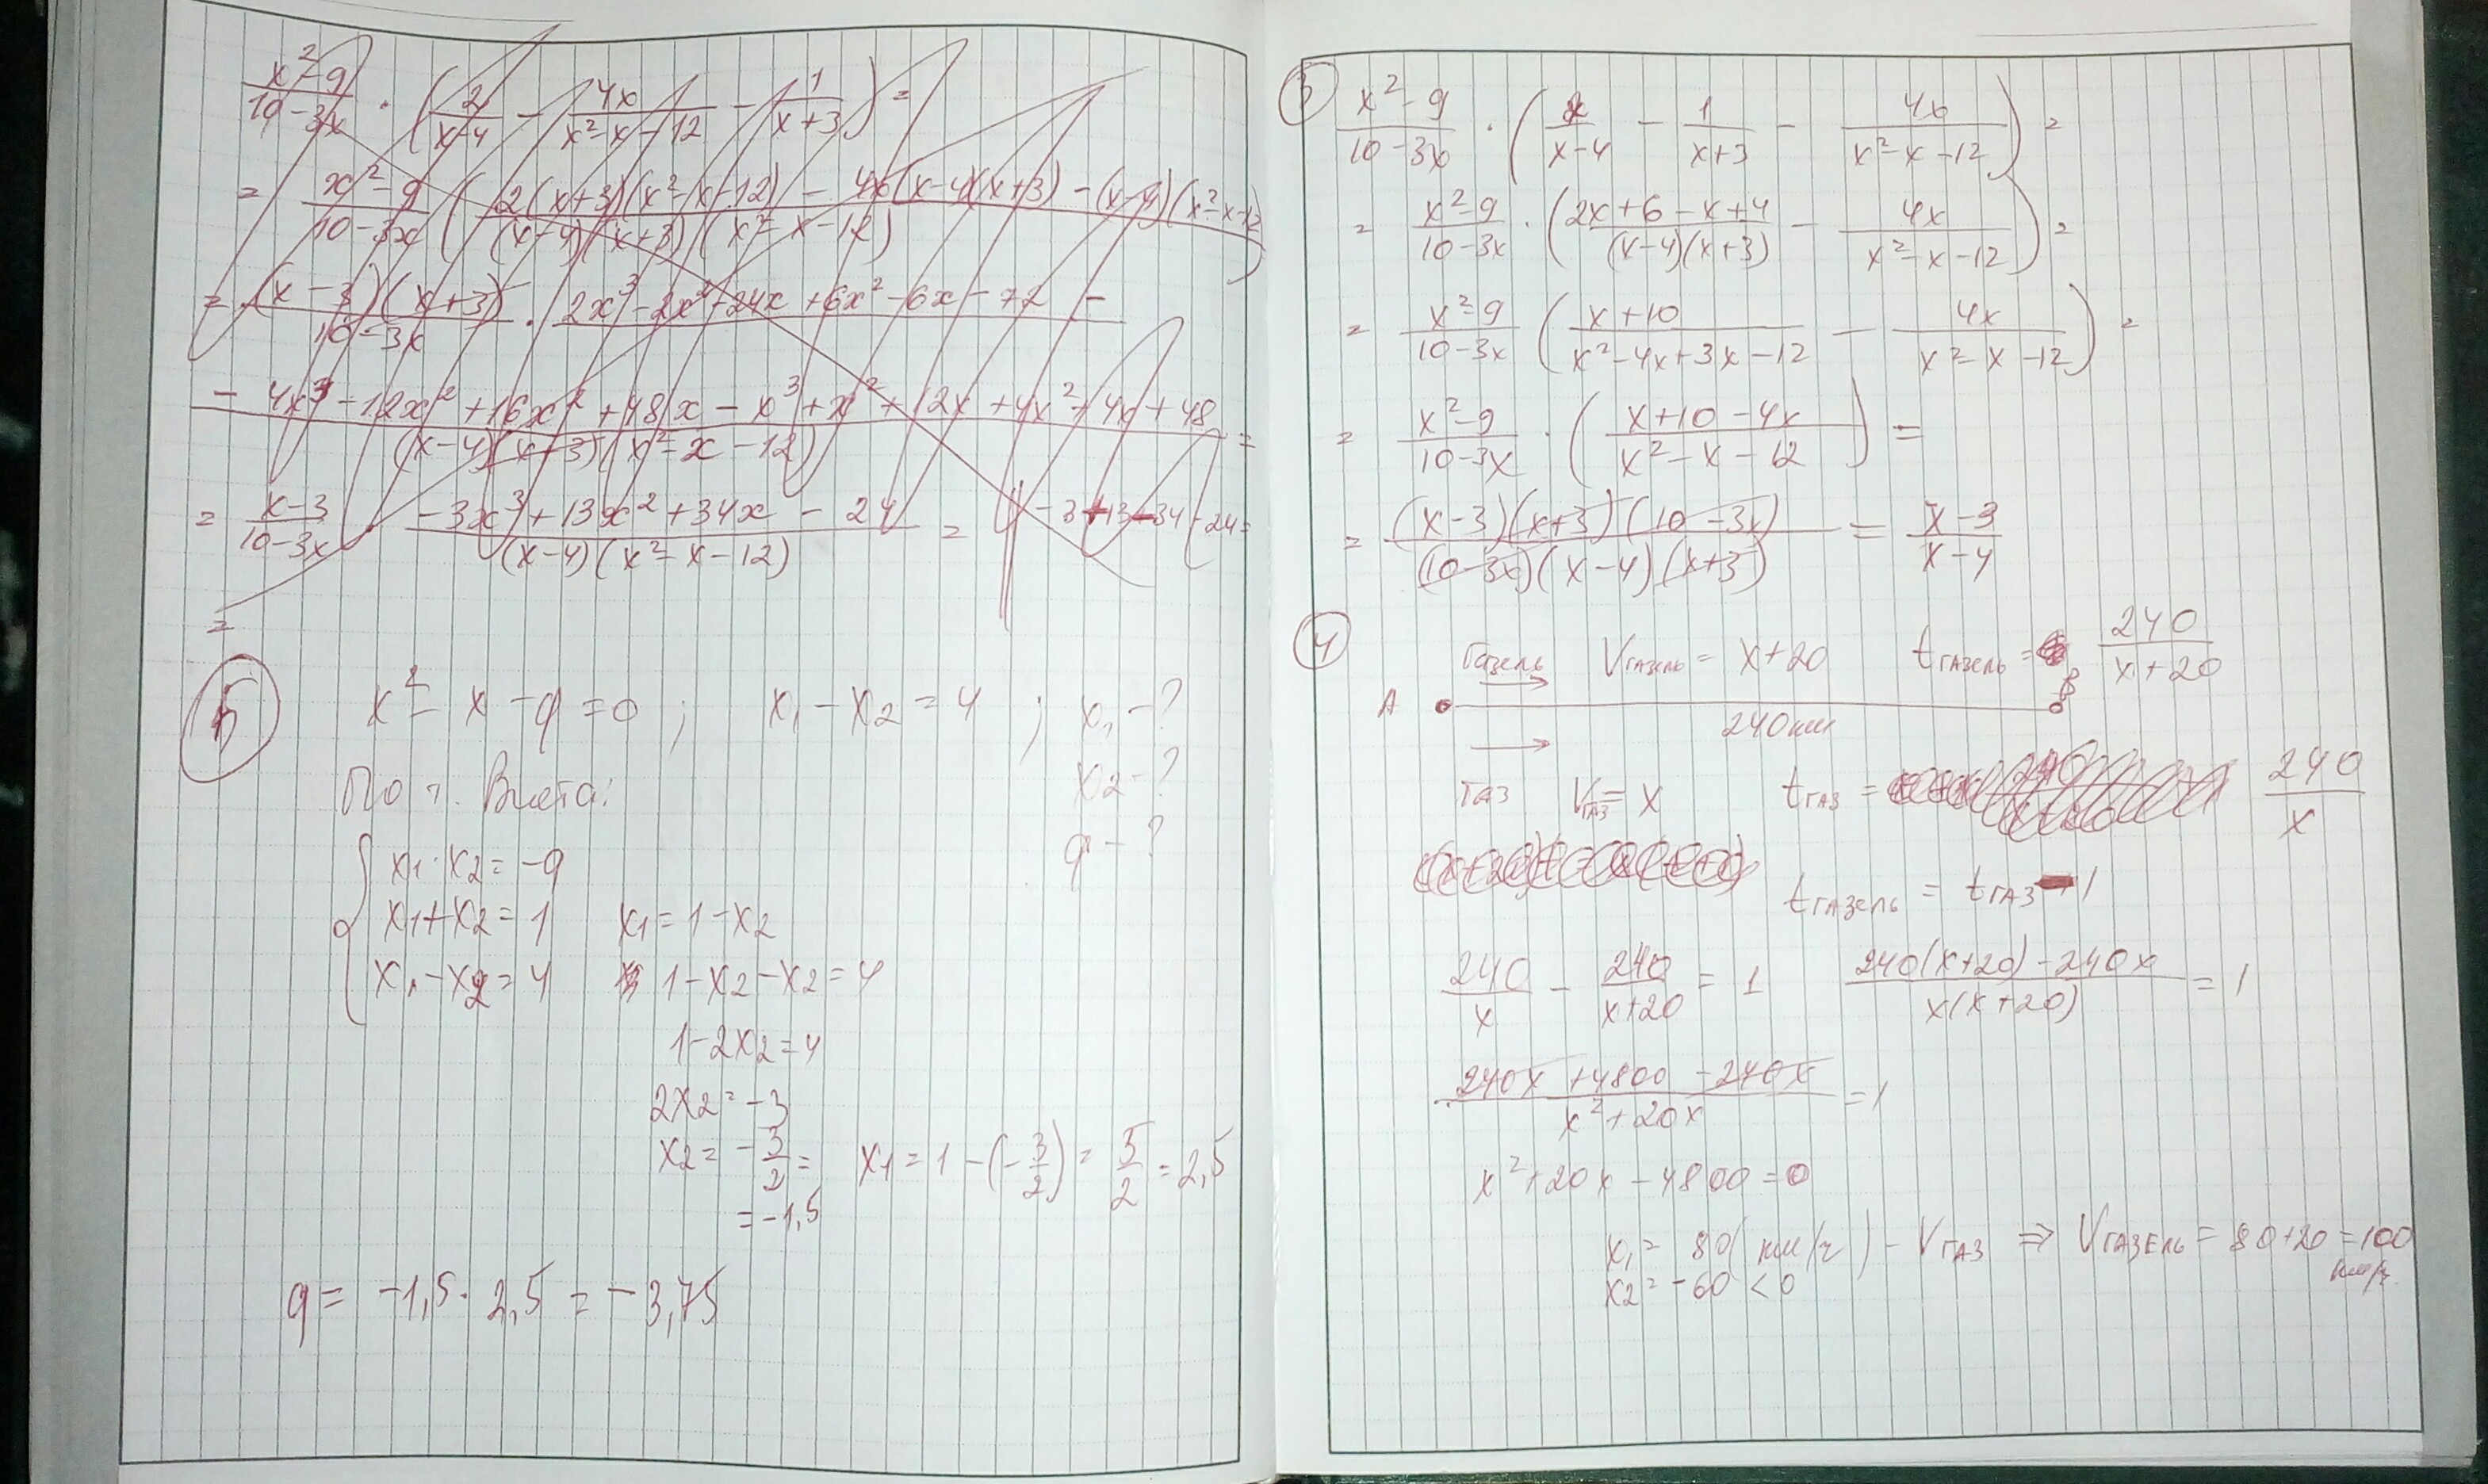 x²-9/10-3x · (2/x-4 - 4x/x²-x-12 - 1/x+3) =
= x²-9/10-3x (2(x+3)(x²-x-12) - 4x(x-4)(x+3) - (x-4)(x²-x-12)/(x-4)(x+3)(x²-x-12))
= (x-3)(x+3)/10-3x · 2x³-2x²-24x+6x²-6x-72 -
- 4x³-12x²+16x²+48x-x³+x²+12x+4x²-4x+48/(x-4)(x+3)(x²-x-12) =
= x-3/10-3x -3x³+13x²+34x-24/(x-4)(x²-x-12) = -3+13-34-24=
=
5 x²-x-q=0; x₁-x₂=4; x₁-?
x₂-?
q-?
По т. Виета:
x₁·x₂=-q
x₁+x₂=1 x₁=1-x₂
x₁-x₂=4 1-x₂-x₂=4
1-2x₂=4
2x₂=-3
x₂=-3/2= x₁=1-(-3/2)=5/2=2,5
=-1,5
q= -1,5·2,5=-3,75
3 x²-9/10-3x · (2/x-4 - 1/x+3 - 4x/x²-x-12) =
= x²-9/10-3x · (2x+6-x+4/(x-4)(x+3) - 4x/x²-x-12) =
= x²-9/10-3x (x+10/x²-4x+3x-12 - 4x/x²-x-12) =
= x²-9/10-3x · (x+10-4x/x²-x-12) =
= (x-3)(x+3)(10-3x)/(10-3x)(x-4)(x+3) = x-3/x-4
4 Газель Vгазель = x+20 tгазель = 240/x+20
A B
240км
ГАЗ Vгаз = x tгаз = 240/x
tгазель = tгаз-1
240/x - 240/x+20 = 1 240(x+20)-240x/x(x+20) = 1
240x+4800-240x/x²+20x =1
x²+20x-4800=0
x₁= 80(км/ч) - Vгаз ⇒ Vгазель = 80+20=100 км/ч.
x₂=-60<0